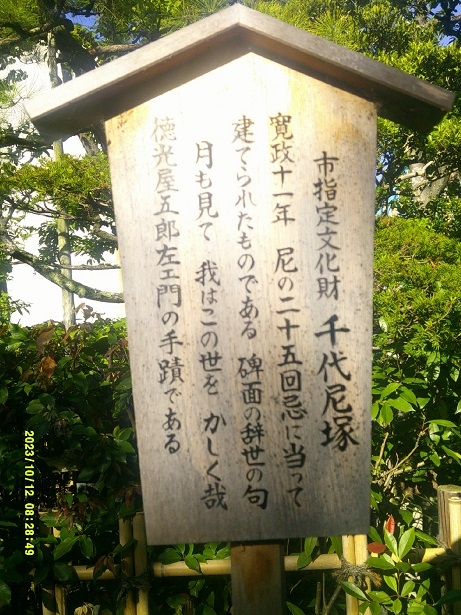 市指定文化財 千代尼塚
寛政十一年 尼の二十五回忌に当って
建てられたものである 碑面の辞世の句
月も見て 我はこの世を かしく哉
徳光屋五郎左エ門の手蹟である
2023/10/12 08:28:49